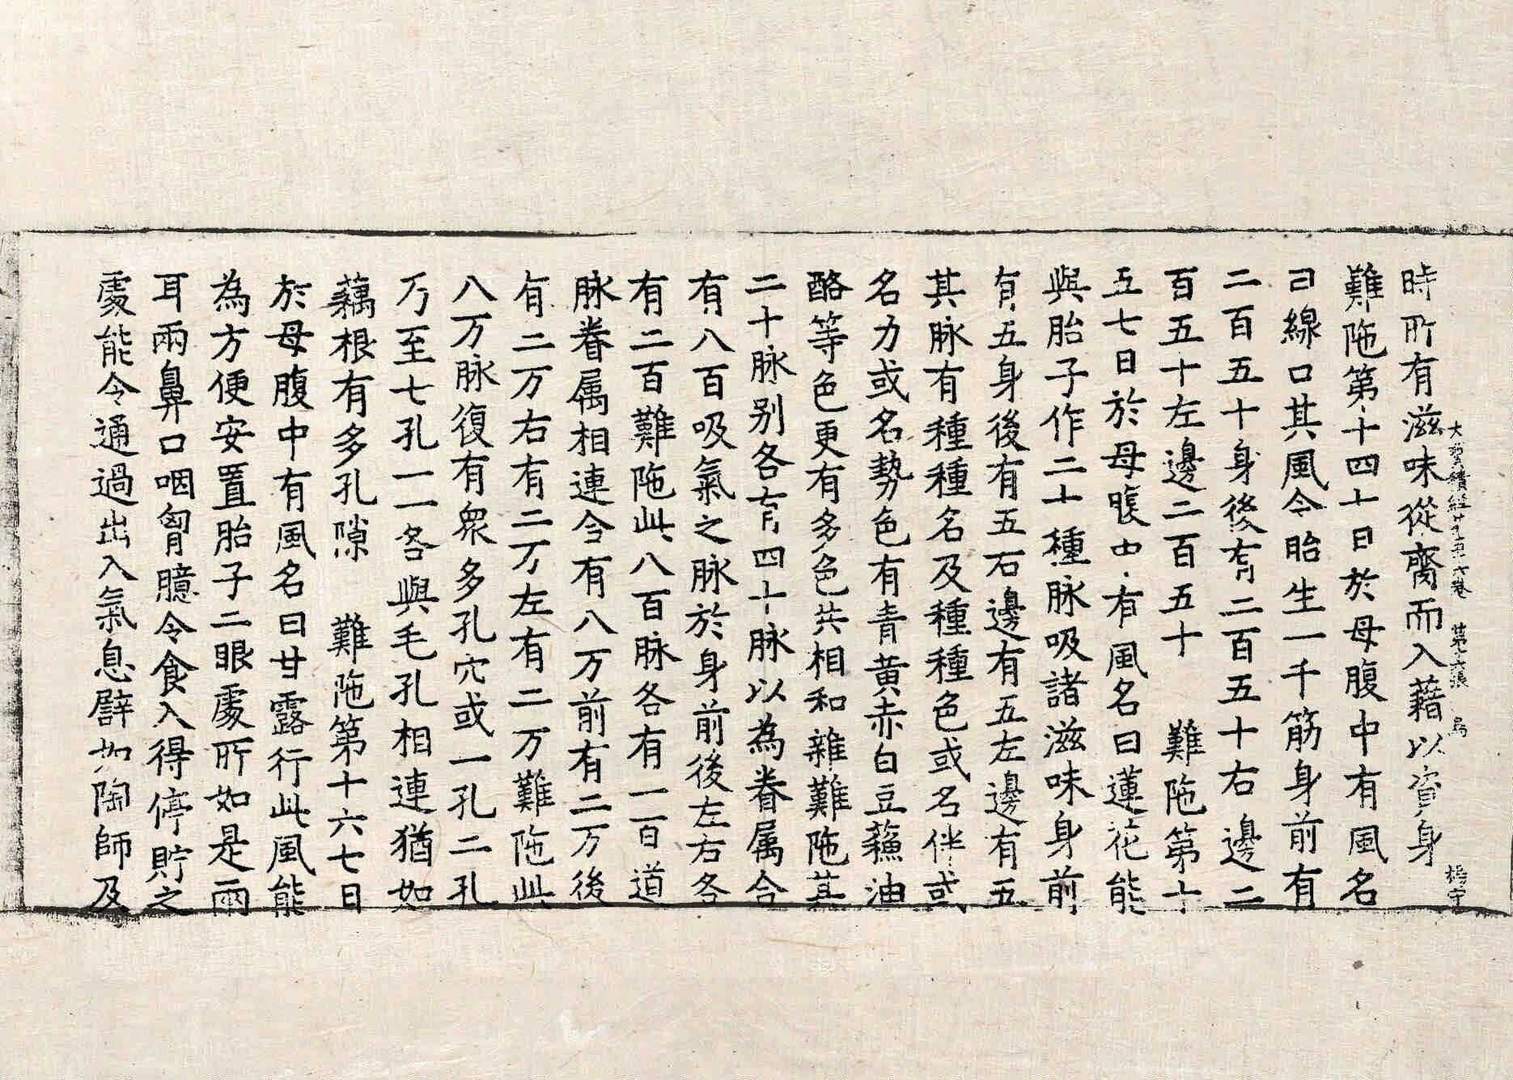 時所有滋味從齎而入藉以資身
大寶積經第五十六卷 第六張 鳥
難陁第十四七日於母腹中有風名
曰線口其風令胎生一千筋身前有
二百五十身後有二百五十右邊二
百五十左邊二百五十 難陁第十
五七日於母腹中有風名曰蓮花能
與胎子作二十種脉吸諸滋味身前
有五身後有五右邊有五左邊有五
其脉有種種名及種種色或名伴或
名力或名勢色有青黃赤白豆蘓油
酪等色更有多色共相和雜難陁其
二十脉别各有四十脉以為眷属合
有八百吸氣之脉於身前後左右各
有二百難陁此八百脉各有一百道
脉眷属相連合有八万前有二万後
有二万右有二万左有二万難陁此
八万脉復有衆多孔穴或一孔二孔
乃至七孔一一各與毛孔相連猶如
藕根有多孔隙 難陁第十六七日
於母腹中有風名曰甘露行此風能
為方便安置胎子二眼處所如是兩
耳兩鼻口咽胷臆令食入得停貯之
處能令通過出入氣息譬如陶師及